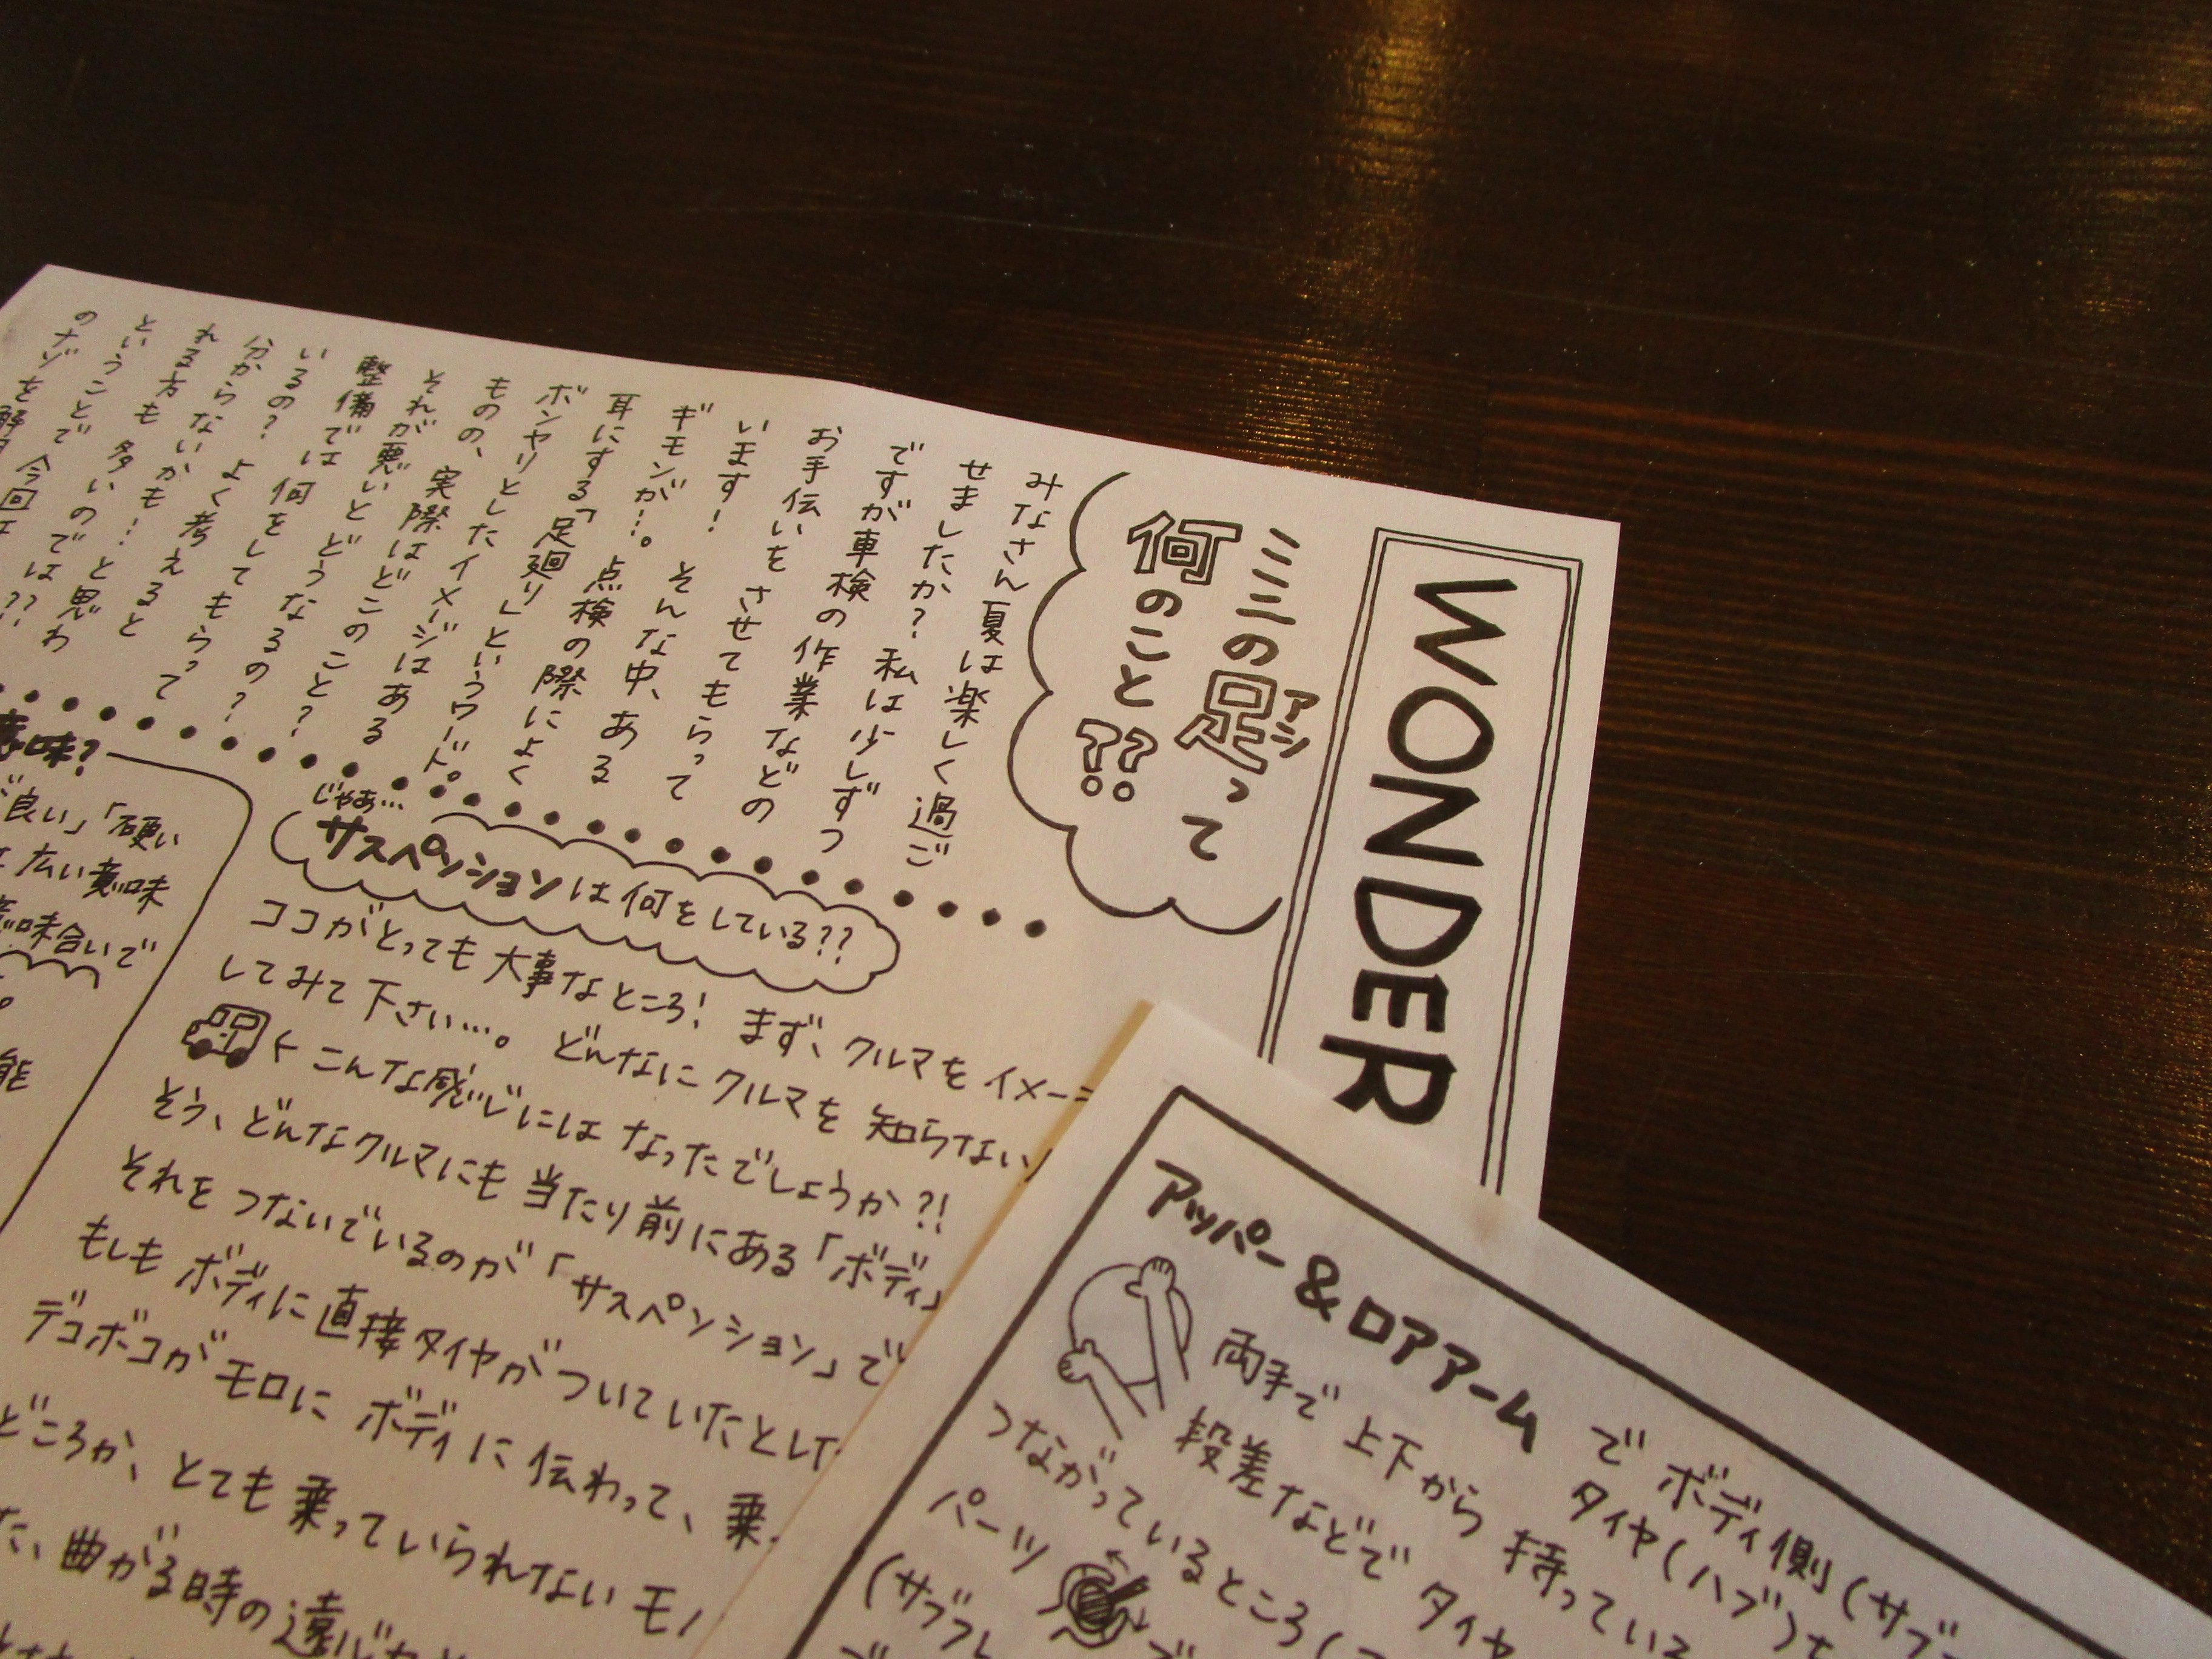 WONDER
ミニの足って
アシ
何のこと??
みなさん夏は楽しく過ご
せましたか?私は少しずつ
ですが車検の作業などの
お手伝いをさせてもらって
います! そんな中、ある
ギモンが…。点検の際によく
耳にする「足廻り」というワード。
ボンヤリとしたイメージはある
ものの、実際はどこのこと?
それが悪いとどうなるの?
整備では何をしてもらって
いるの? よく考えると
分からないかも…と思わ
れる方も多いのでは??
ということで今回は
のナゾを解
意味?
良い」「硬い
広い意味
意味合いで
能
じゃあ…
サスペンションは何をしている??
ココがとっても大事なところ! まず、クルマをイメー
してみて下さい…。 どんなにクルマを知らない
←こんな感じにはなったでしょうか?!
そう、どんなクルマにも当たり前にある「ボディ」
それをつないでいるのが「サスペンション」で
もしもボディに直接タイヤがついていたとした
デコボコがモロにボディに伝わって、乗
どころか、とても乗っていられないモノ
た、曲がる時の遠
アッパー&ロアアーム
でボディ側(サブ
両手で上下から持っている
タイヤ(ハブ)
段差などでタイヤ
つながっているところ(
パーツ
(サブフレ